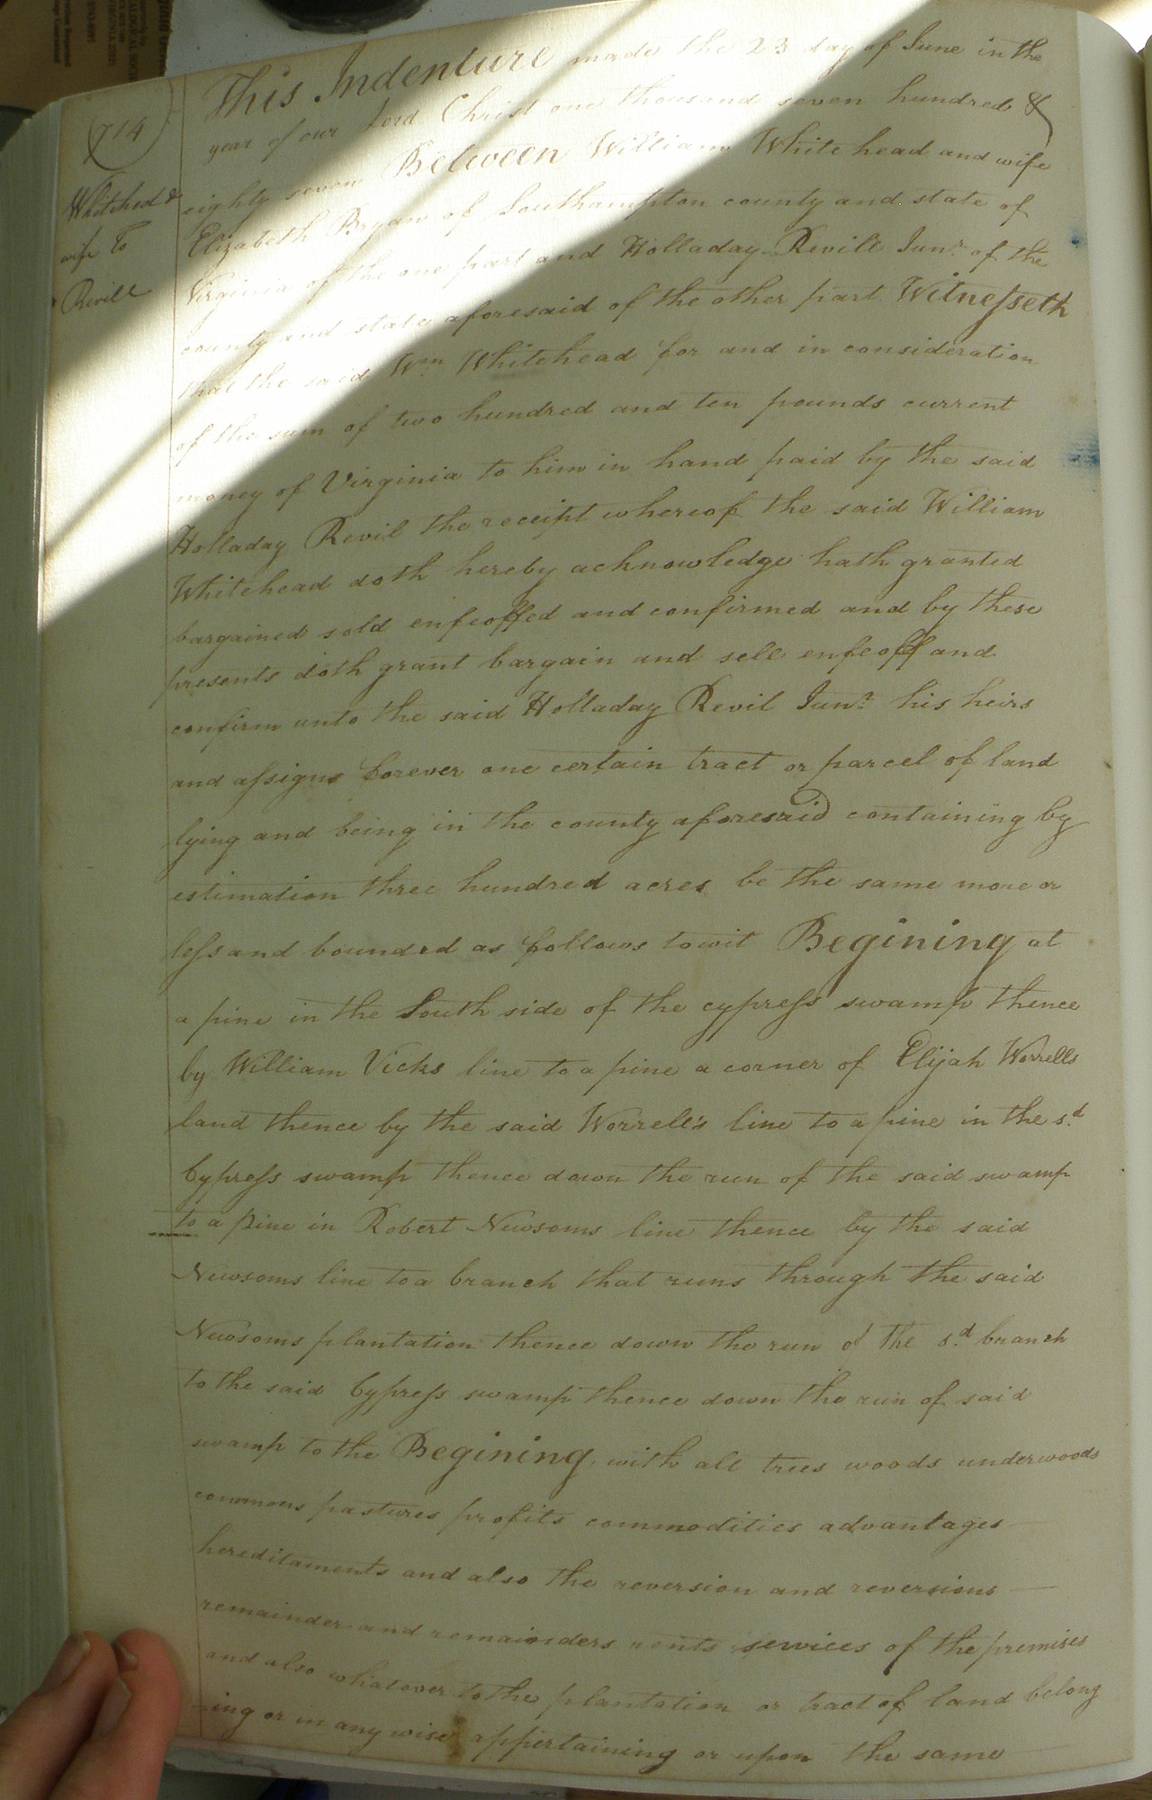 714
Whitehed &
wife To
Revill
This Indenture made the 23 day of June in the
year of our Lord Christ one thousand seven hundred &
eighty seven Between William White head and wife
Elizabeth Bryan of Southampton county and state of
Virginia of the one part and Holladay Revill Junr. of the
county and state aforesaid of the other part Witnesseth
that the said Wm Whitehead for and in consideration
of the sum of two hundred and ten pounds current
money of Virginia to him in hand paid by the said
Holladay Revil the receipt whereof the said William
Whitehead doth hereby acknowledge hath granted
bargained sold enfeoffed and confirmed and by these
presents doth grant bargain and sell enfeoff and
confirm unto the said Holladay Revil Junr. his heirs
and assigns forever one certain tract or parcel of land
lying and being in the county aforesaid containing by
estimation three hundred acres be the same more or
less and bounded as follows towit Begining at
a pine in the South side of the cypress swamp thence
by William Vicks line to a pine a corner of Elijah Worrells
land thence by the said Worrell's line to a pine in the sd.
Cypress swamp thence down the run of the said swamp
to a pine in Robert Newsoms line thence by the said
Newsoms line to a branch that runs through the said
Newsoms plantation thence down the run of the sd. branch
to the said Cypress swamp thence down the run of said
swamp to the Begining with all trees woods underwoods
commons pastures profits commodities advantages
hereditaments and also the reversion and reversions
remainder and remainders rents services of the premises
and also whatever to the plantation or tract of land belong
-ing or in any wise appertaining or upon the same